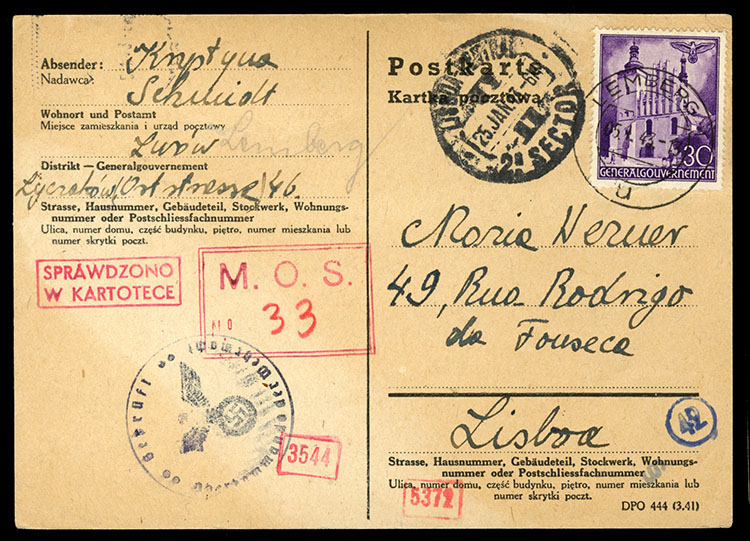 Absender: Krystyna
Nadawca: Schmidt
Wohnort und Postamt
Miejsce zamieszkania i urząd pocztowy
Lwów Lemberg
Distrikt — Generalgouvernement
46.
Strasse, Hausnummer, Gebäudeteil, Stockwerk, Wohnungs-
nummer oder Postschliessfachnummer
Ulica, numer domu, część budynku, piętro, numer mieszkania lub
numer skrytki poczt.
SPRAWDZONO
W KARTOTECE
M. O. S.
No 33
Geprüft
3544
Postkarte
Kartka pocztowa
LISBOA CENTRAL
25.JAN.42
2ª SECTOR
LEMBERG
u
30
GENERALGOUVERNEMENT
Maria Werner
49, Rua Rodrigo
da Fonseca
Lisboa
42
Strasse, Hausnummer, Gebäudeteil, Stockwerk, Wohnungs-
nummer oder Postschliessfachnummer
Ulica, numer domu, część budynku, piętro, numer mieszkania lub
numer skrytki poczt.
5372
DPO 444 (3.41)